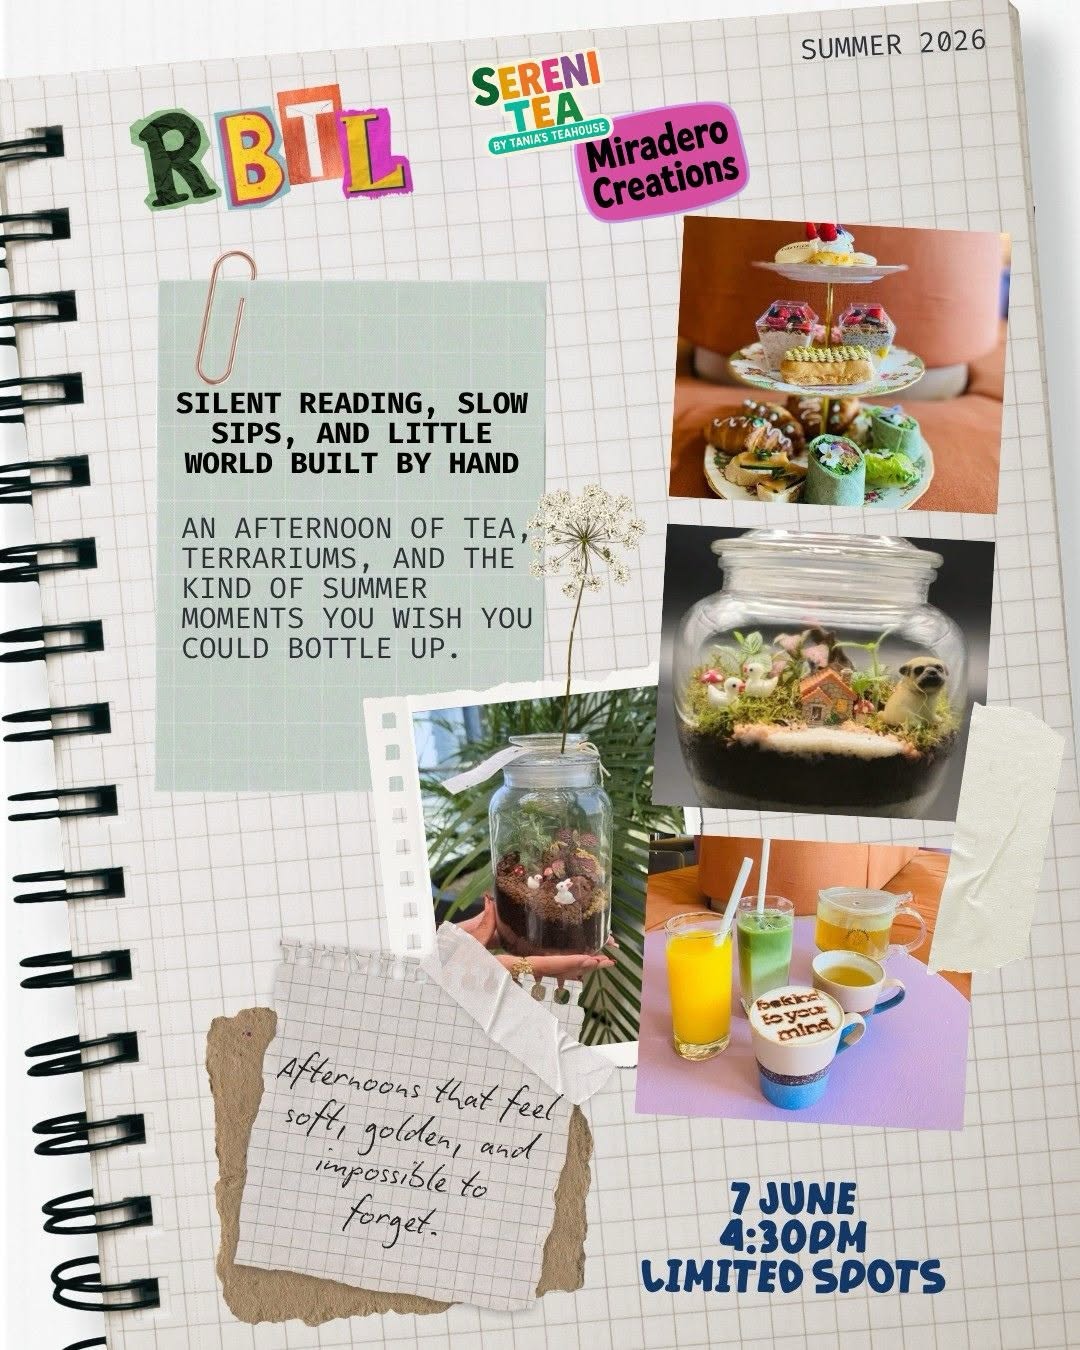 SUMMER 2026
RBTL
SERENI
TEA
BY TANIA'S TEAHOUSE
Miradero
Creations
SILENT READING, SLOW
SIPS, AND LITTLE
WORLD BUILT BY HAND
AN AFTERNOON OF TEA,
TERRARIUMS, AND THE
KIND OF SUMMER
MOMENTS YOU WISH YOU
COULD BOTTLE UP.
Afternoons that feel
soft, golden, and
impossible to
forget.
to your
mind
7 JUNE
4:30PM
LIMITED SPOTS